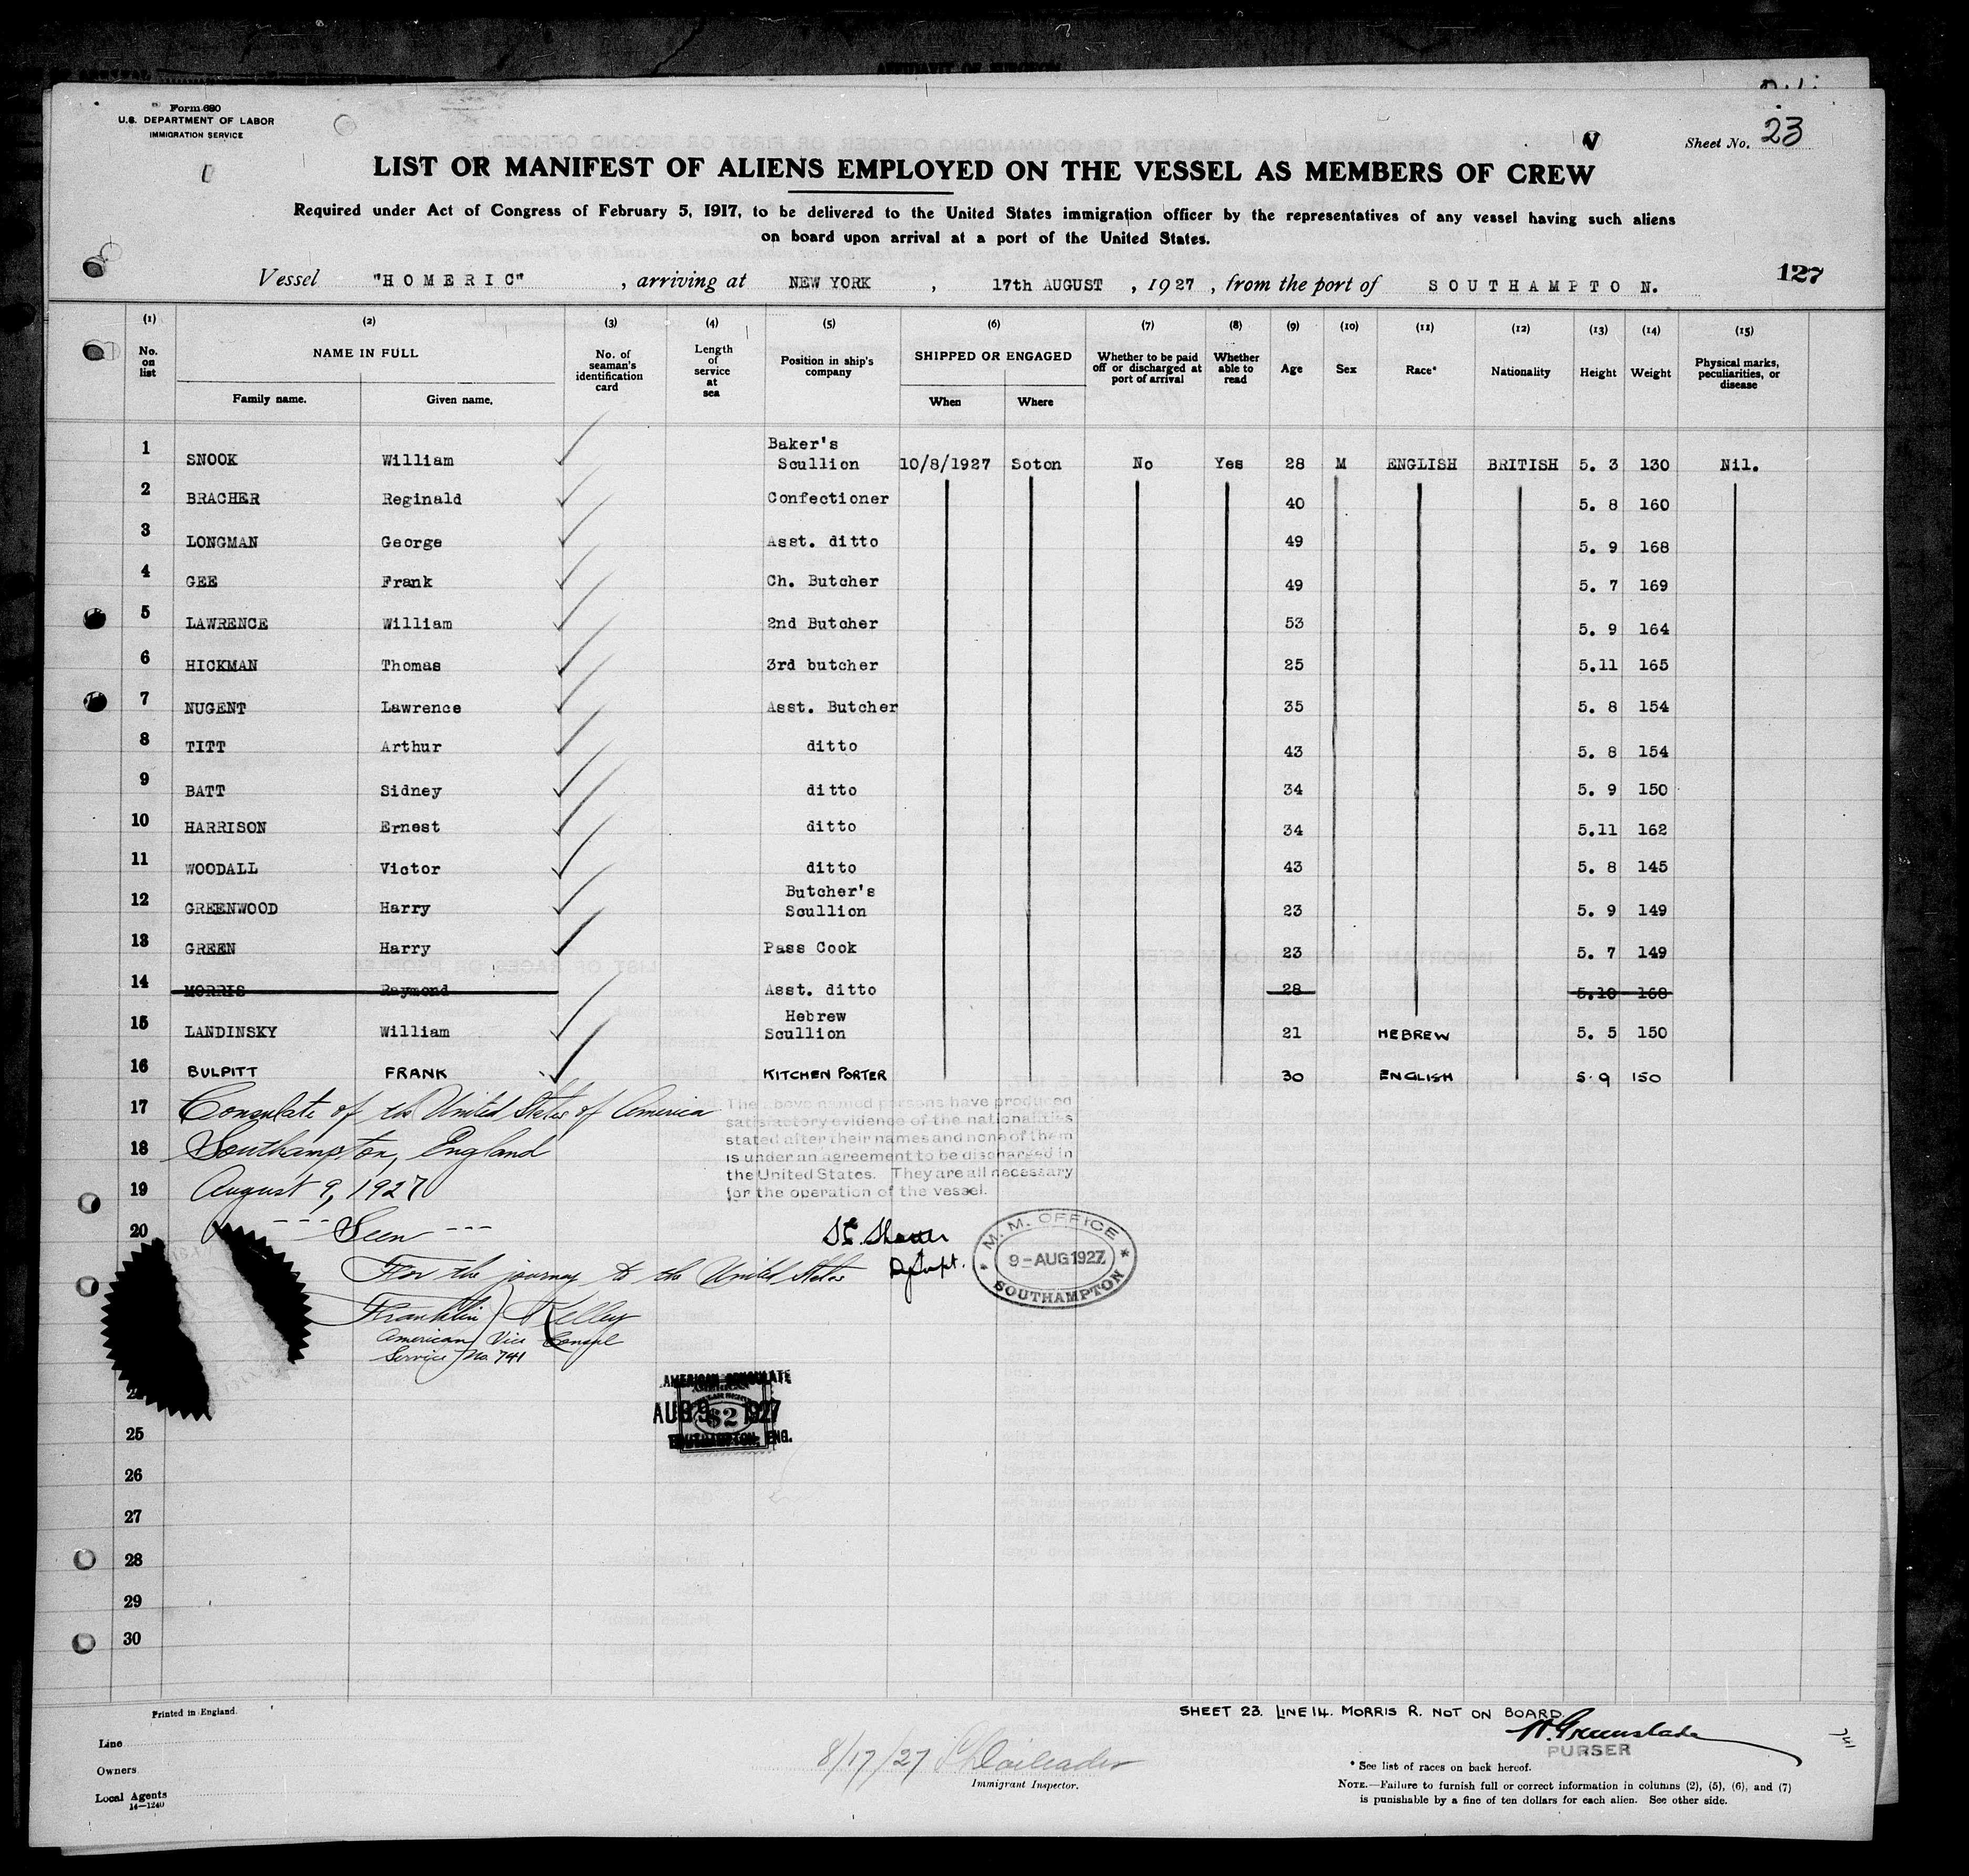 Form 680
U.S. DEPARTMENT OF LABOR
IMMIGRATION SERVICE
Sheet No. 23
LIST OR MANIFEST OF ALIENS EMPLOYED ON THE VESSEL AS MEMBERS OF CREW
Required under Act of Congress of February 5, 1917, to be delivered to the United States immigration officer by the representatives of any vessel having such aliens
on board upon arrival at a port of the United States.
Vessel "HOMERIC", arriving at NEW YORK, 17th AUGUST, 1927, from the port of SOUTHAMPTON.
127
(1) (2) (3) (4) (5) (6) (7) (8) (9) (10) (11) (12) (13) (14) (15)
No. on list NAME IN FULL Family name. Given name. No. of seaman's identification card Length of service at sea Position in ship's company SHIPPED OR ENGAGED When Where Whether to be paid off or discharged at port of arrival Whether able to read Age Sex Race* Nationality Height Weight Physical marks, peculiarities, or disease
1 SNOOK William Baker's Scullion 10/8/1927 Soton No Yes 28 M ENGLISH BRITISH 5. 3 130 Nil.
2 BRACHER Reginald Confectioner 40 5. 8 160
3 LONGMAN George Asst. ditto 49 5. 9 168
4 GEE Frank Ch. Butcher 49 5. 7 169
5 LAWRENCE William 2nd Butcher 53 5. 9 164
6 HICKMAN Thomas 3rd butcher 25 5.11 165
7 NUGENT Lawrence Asst. Butcher 35 5. 8 154
8 TITT Arthur ditto 43 5. 8 154
9 BATT Sidney ditto 34 5. 9 150
10 HARRISON Ernest ditto 34 5.11 162
11 WOODALL Victor ditto 43 5. 8 145
12 GREENWOOD Harry Butcher's Scullion 23 5. 9 149
13 GREEN Harry Pass Cook 23 5. 7 149
14 MORRIS Raymond Asst. ditto 28 5.10 168
15 LANDINSKY William Hebrew Scullion 21 HEBREW 5. 5 150
16 BULPITT FRANK KITCHEN PORTER 30 ENGLISH 5.9 150
17 Consulate of the United States of America
18 Southampton, England
19 August 9, 1927
20 --- Seen ---
For the journey to the United States
Franklin Kelley
American Vice Consul
Service No. 741
The above named persons have produced
satisfactory evidence of the nationalities
stated after their names and none of them
is under an agreement to be discharged in
the United States. They are all necessary
for the operation of the vessel.
M. M. OFFICE
9-AUG 1927
SOUTHAMPTON
AMERICAN CONSULATE
AUG 9 1927
$2
SOUTHAMPTON, ENG.
25
26
27
28
29
30
SHEET 23. LINE 14. MORRIS R. NOT ON BOARD.
W. Greenslade
PURSER
Printed in England.
Line
Owners
Local Agents
14—1240
8/17/27
Immigrant Inspector.
* See list of races on back hereof.
NOTE.—Failure to furnish full or correct information in columns (2), (5), (6), and (7)
is punishable by a fine of ten dollars for each alien. See other side.